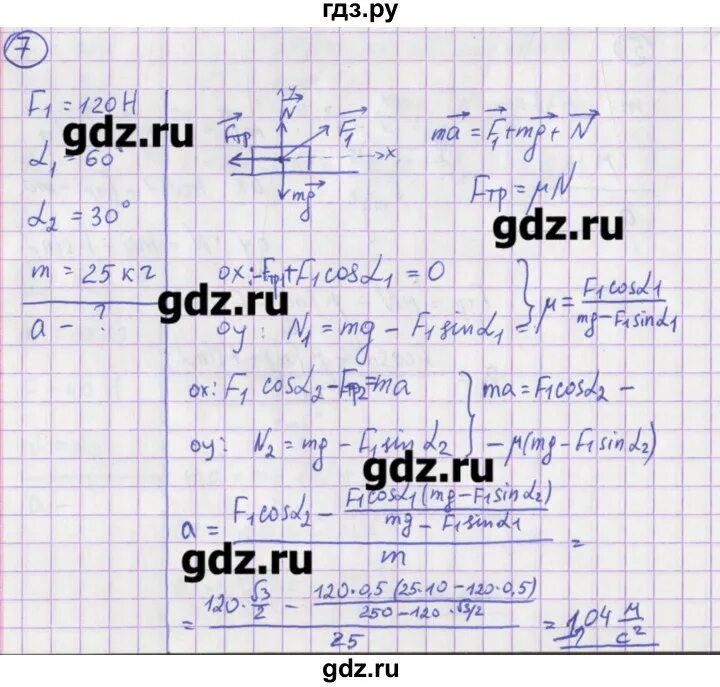 гдз.ру
7
F₁ = 120 Н
α₁ = 60°
α₂ = 30°
m = 25 кг
a – ?
y
N
Fтр
F₁
x
mg
ma = F₁ + mg + N
Fтр = μN
gdz.ru
gdz.ru
gdz.ru
ox: -Fтр₁ + F₁cosα₁ = 0
oy: N₁ = mg – F₁sinα₁ =
} μ = F₁cosα₁ / (mg – F₁sinα₁)
ox: F₁ cosα₂ – Fтр₂ = ma
oy: N₂ = mg – F₁sinα₂
} ma = F₁cosα₂ –
– μ(mg – F₁sinα₂)
gdz.ru
a = (F₁cosα₂ – F₁cosα₁(mg – F₁sinα₂) / (mg – F₁sinα₁)) / m =
gdz.ru
= (120·√3/2 – 120·0,5(25·10 – 120·0,5) / (250 – 120·√3/2)) / 25 = 1,04 м/с²
gdz.ru